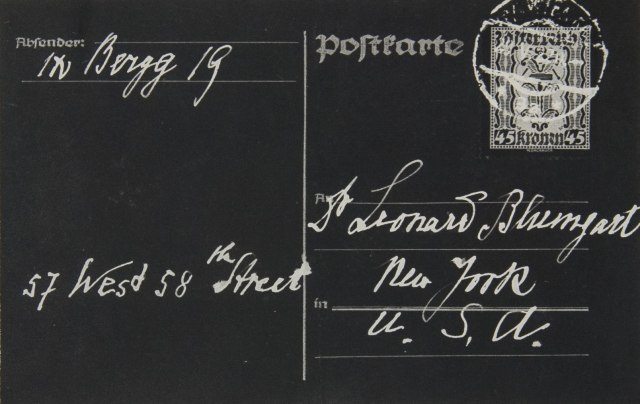 Absender:
IX Bergg 19
Postkarte
45 Kronen 45
An
Dr Leonard Blumgart
57 West 58th Street
New York
in
U. S. A.